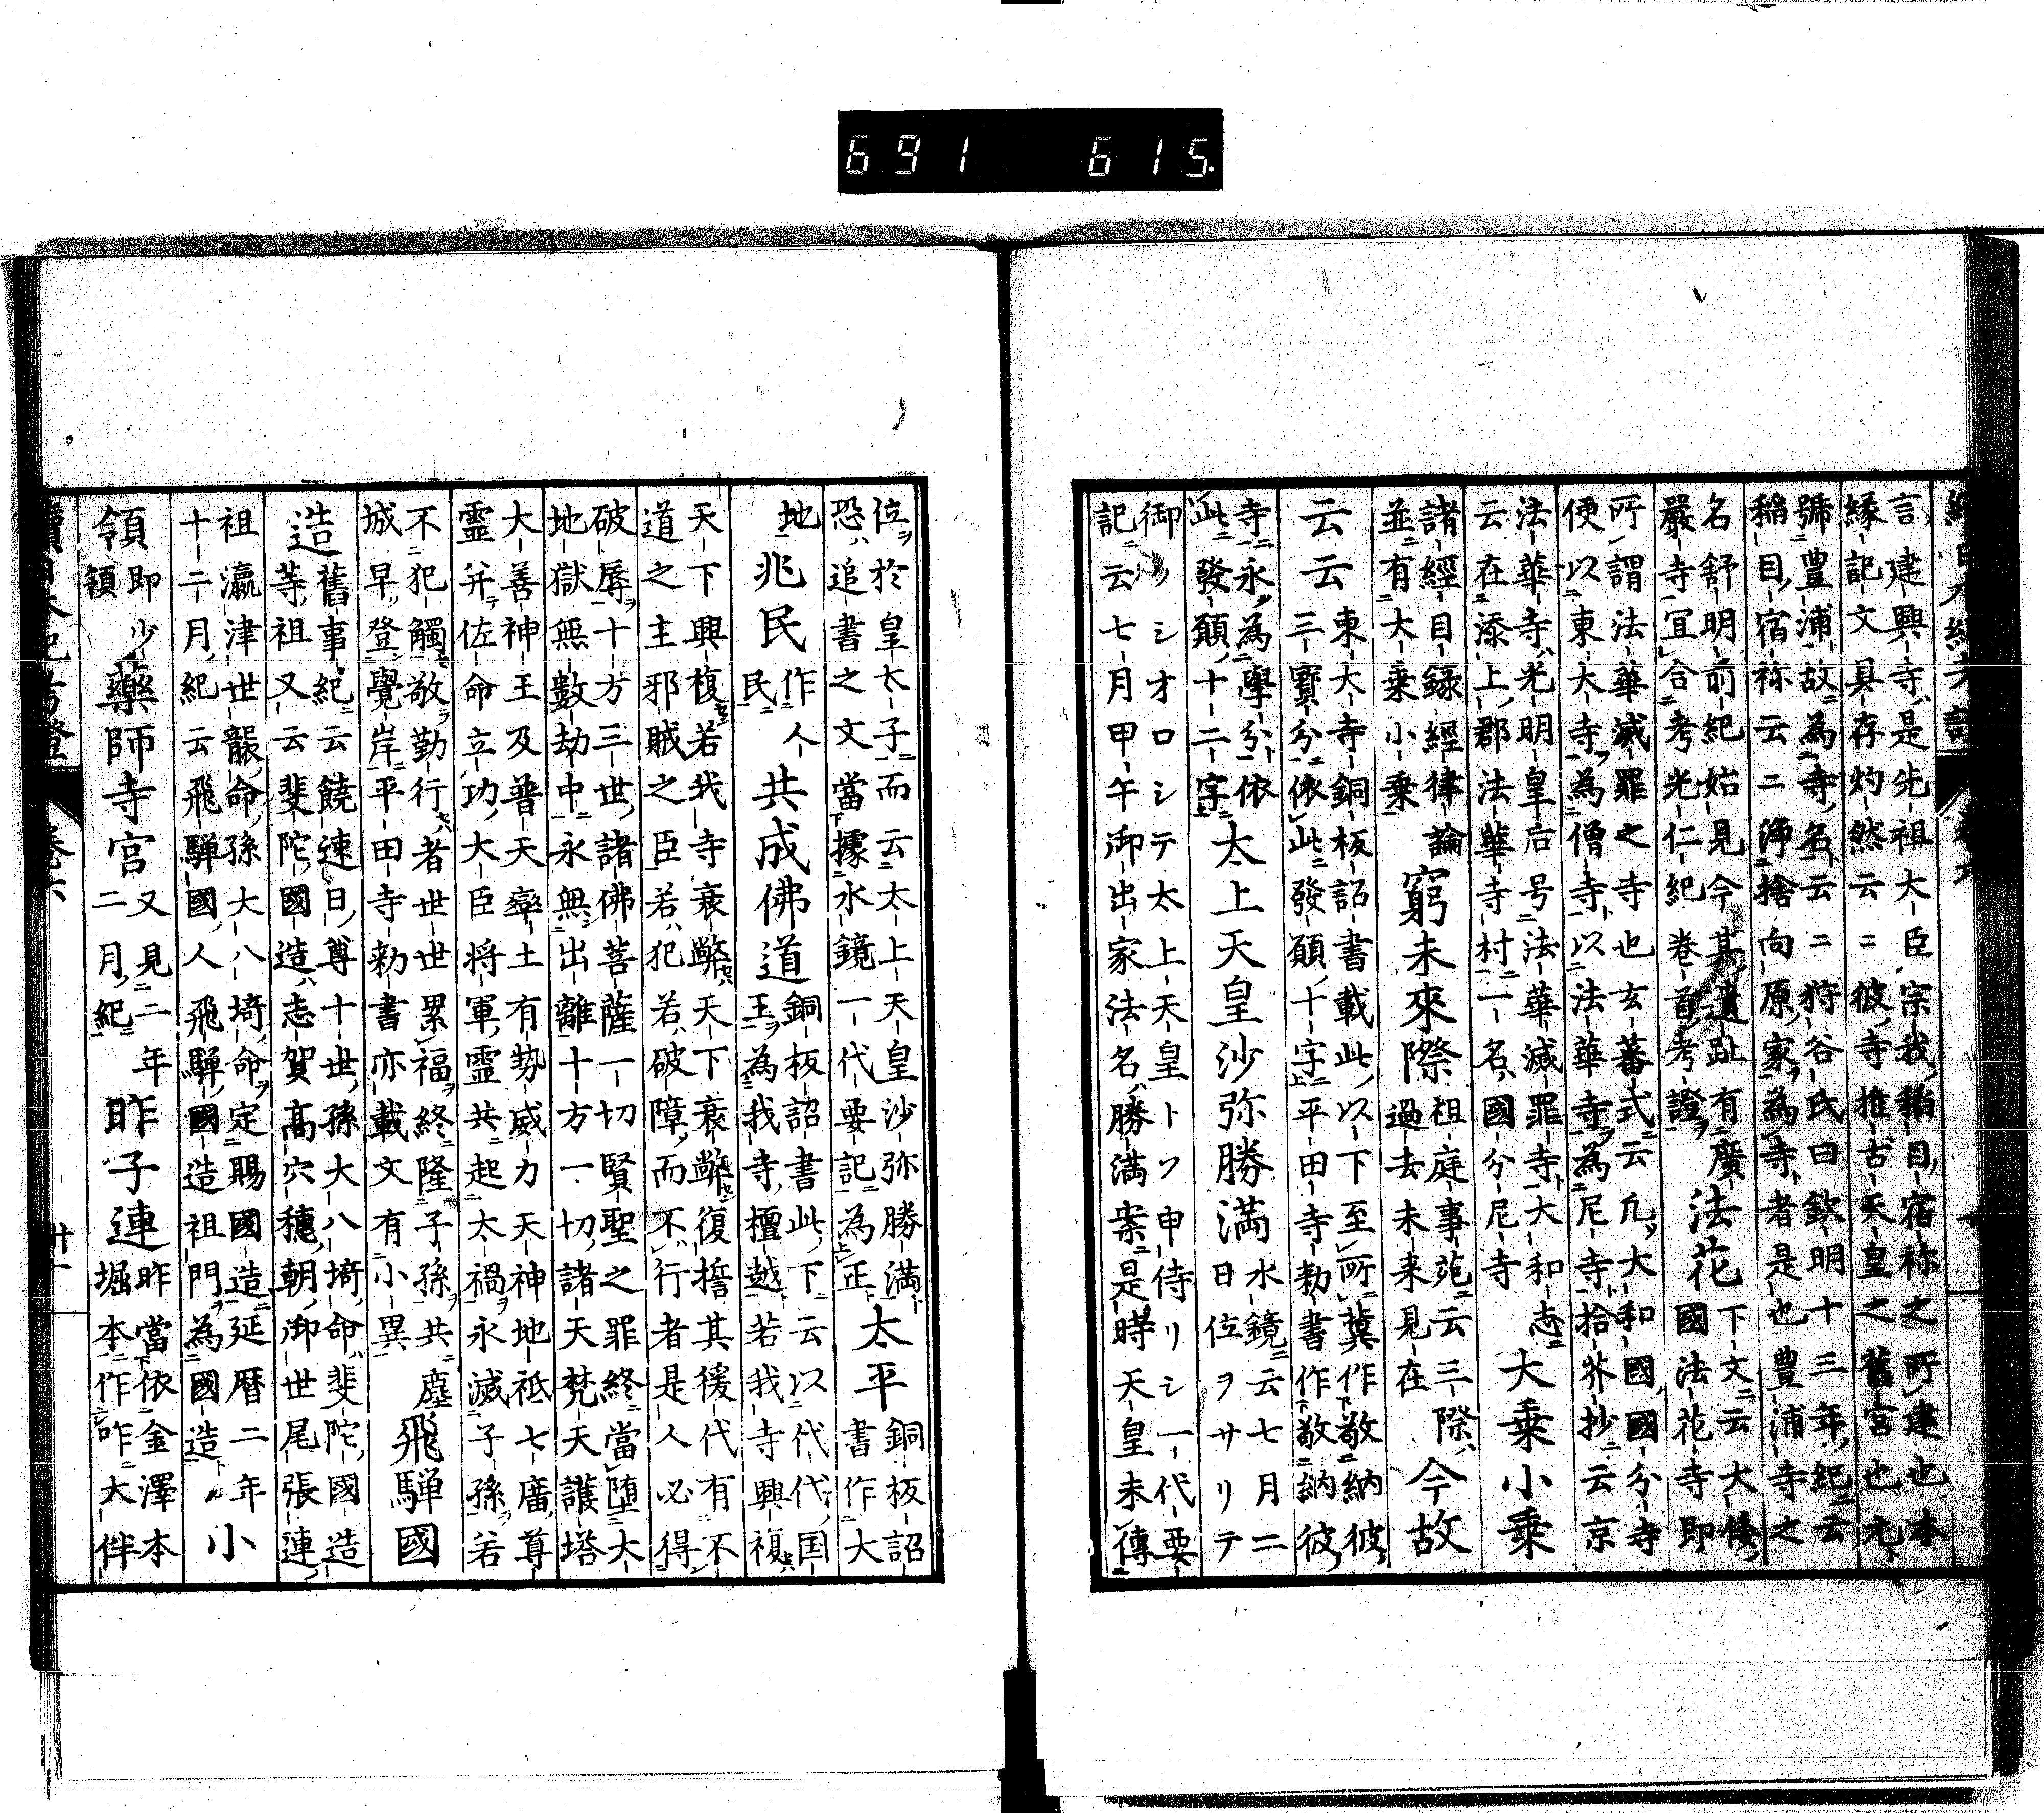 691 615.
言建興寺是先祖大臣宗我稲目宿祢之所建也本
縁記文具存灼然云二彼寺推古天皇之舊宮也元
號豊浦故為寺名云二狩谷氏曰欽明十三年紀云
稲目宿祢云二淨捨向原家為寺者是也豊浦寺之
名舒明前紀始見今其遺趾有廣
嚴寺宜合考光仁紀卷首考證
法花
下文云大倭
國法花寺即
所謂法華滅罪之寺也玄蕃式云凡大和國國分寺
便以東大寺為僧寺以法華寺為尼寺拾芥抄云京
法華寺光明皇后号法華滅罪寺大和志
云在添上郡法華寺村一名國分尼寺
大乗小乗
諸經目録經律論
並有大乗小乗
窮未來際
祖庭事苑云三際
過去未来見在
今故
云云
東大寺銅板詔書載此以下至所冀作敬納彼
三寶分依此發願十字平田寺勅書作敬納彼
寺永為學分依
此發願十二字
太上天皇沙弥勝満
水鏡云七月二
日位ヲサリテ
御ノシオロシテ太上天皇トソ申侍リシ一代要
記云七月甲午御出家法名勝満案是時天皇未傳
位ヲ於皇太子而云太上天皇沙弥勝満
恐追書之文當據水鏡一代要記為正
太平
銅板詔
書作大
地
兆民
作人
民
共成佛道
銅板詔書此下云以代代国
王為我寺檀越若我寺興複
天下興復若我寺衰弊天下衰弊復誓其後代有不
道之主邪賊之臣若犯若破障而不行者是人必得
破辱十方三世諸佛菩薩一切賢聖之罪終當堕大
地獄無數劫中永無出離十方一切諸天梵天護塔
大善神王及普天率土有勢威力天神地祇七廣尊
靈并佐命立功大臣将軍靈共起太禍永滅子孫若
不犯觸敬勤行者世世累福終隆子孫共塵
城早登覺岸平田寺勅書亦載文有小異
飛騨國
造
舊事紀云饒速日尊十世孫大八埼命斐陀國造
等祖又云斐陀國造志賀髙穴穂朝御世尾張連
祖瀛津世襲命孫大八埼命定賜國造延暦二年
十二月紀云飛騨國人飛騨國造祖門為國造
小
領
即少
領
藥師寺宮
又見二年
二月紀
昨子連
昨當依金澤本
堀本作咋大伴